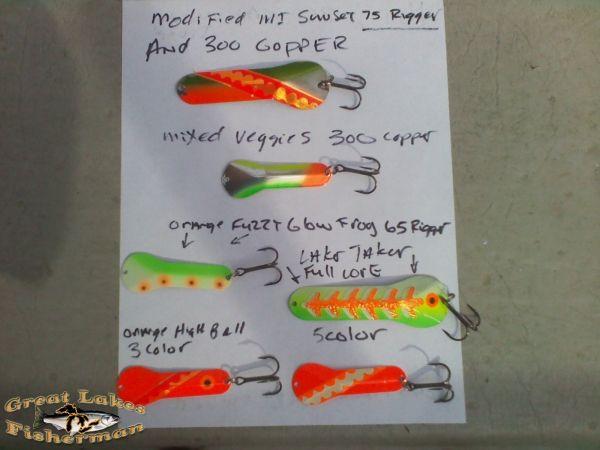 modified MI Sunset 75 Rigger
And 300 COPPER
mixed veggies 300 copper
orange Fuzzy Glow Frog 65 Rigger
LAKE TAKER
Full CORE
orange High Ball
3 color
5 color
Great Lakes
Fisherman